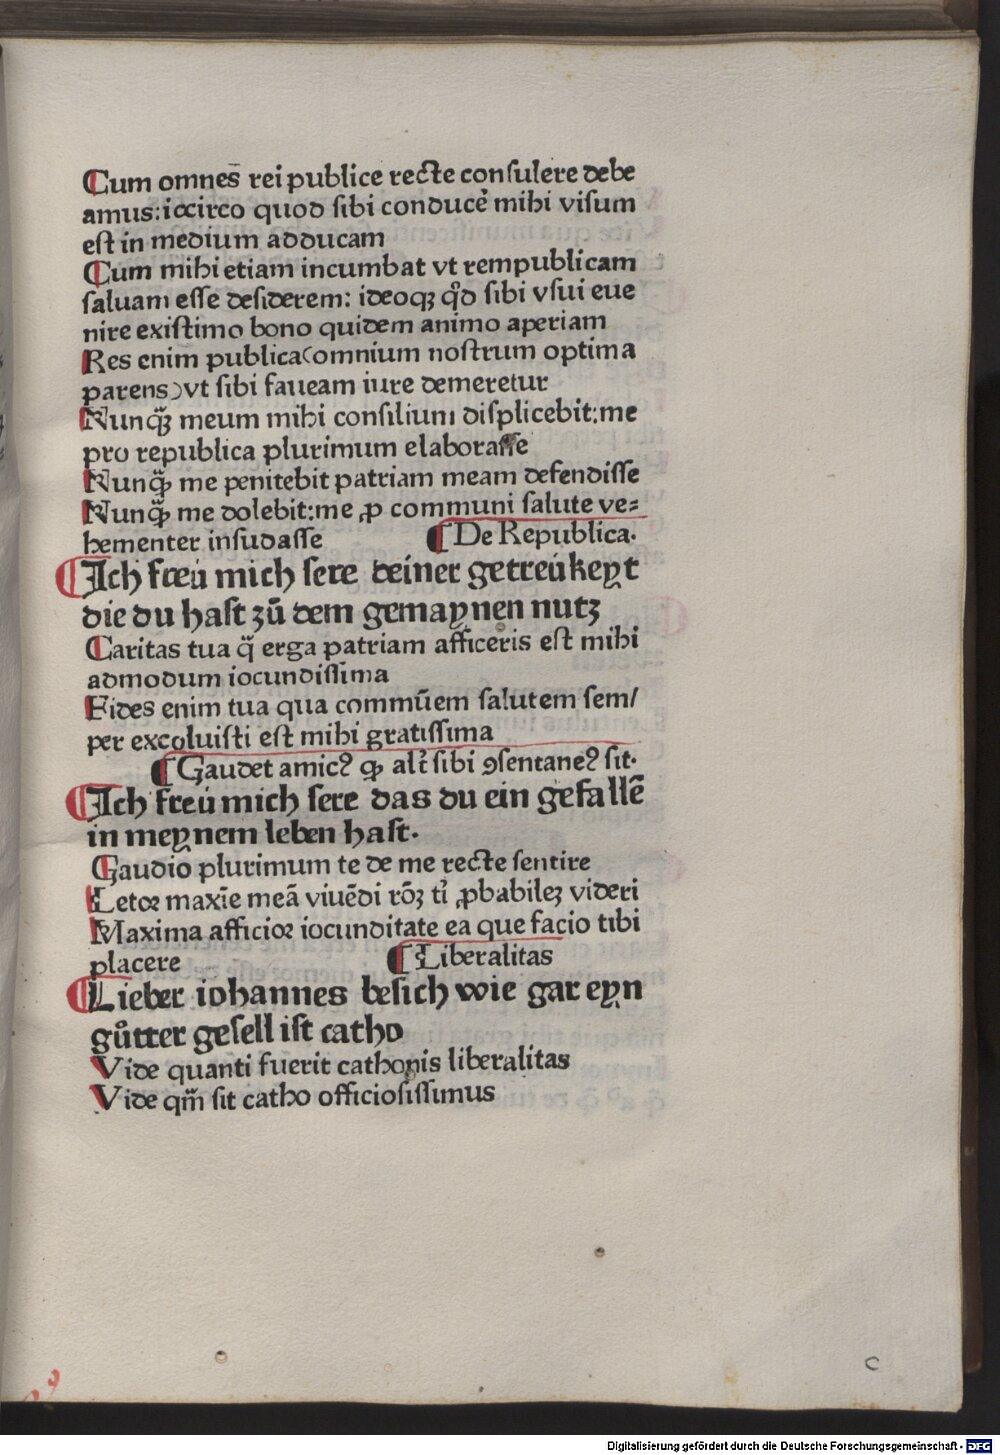 Cum omnes̄ rei publice recte conſulere debe
amus: iccirco quod ſibi conduce᷑ mihi viſum
eſt in medium adducam
Cum mihi etiam incumbat vt rempublicam
ſaluam eſſe deſiderem: ideoqꝫ qͦd ſibi vſui eue
nire exiſtimo bono quidem animo aperiam
Res enim publica(omnium noſtrum optima
parens)vt ſibi faueam iure demeretur
Nunqꝫ̄ meum mihi conſilium diſplicebit: me
pro republica plurimum elaboraſſe
Nunqꝫ̄ me penitebit patriam meam defendiſſe
Nunqꝫ̄ me dolebit: me ꝓ communi ſalute ve⸗
hementer inſudaſſe ¶ De Republica.
¶ Ich freü mich ſere deiner getreükeyt
die du haſt zū dem gemaynen nutz
Caritas tua q̈ erga patriam afficeris eſt mihi
admodum iocundiſſima
Fides enim tua qua commūem ſalutem ſem/
per excoluiſti eſt mihi gratiſſima
¶ Gaudet amicꝰ ꝙ alt̄i ſibi ꝯſentaneꝰ ſit.
¶ Ich freü mich ſere das du ein gefallē
in meynem leben haſt.
Gaudio plurimum te de me recte ſentire
Letoꝛ maxīe meā viuēdi rōꝫ tⁱ ꝓbabileꝫ videri
Maxima afficioꝛ iocunditate ea que facio tibi
placere ¶ Liberalitas
¶ Lieber iohannes beſich wie gar eyn
gůtter geſell iſt catho
Vide quanti fuerit cathonis liberalitas
Vide qm̄ ſit catho officioſiſſimus
c
Digitalisierung gefördert durch die Deutsche Forschungsgemeinschaft - DFG